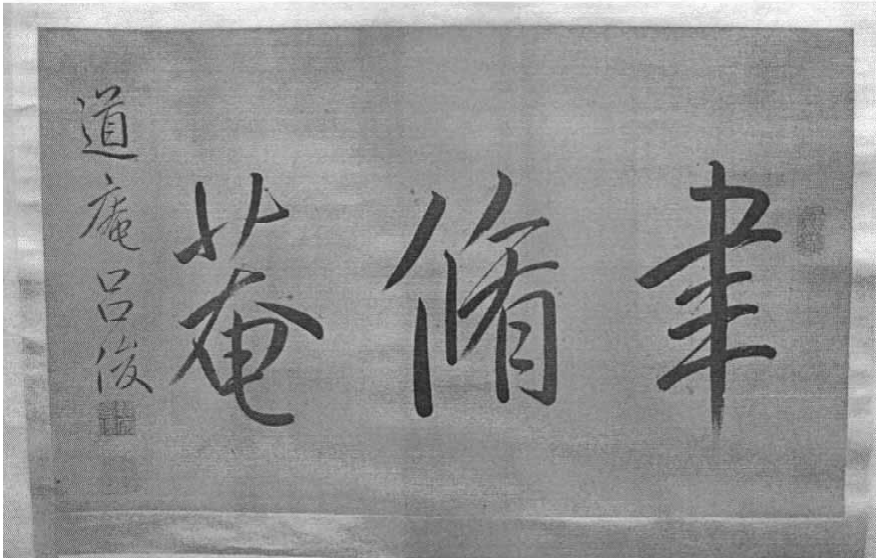 聿脩菴
道庵呂俊